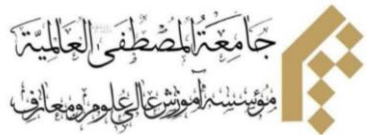 جامعة المصطفى العالمية
مؤسسه آموزش عالی علوم و معارف